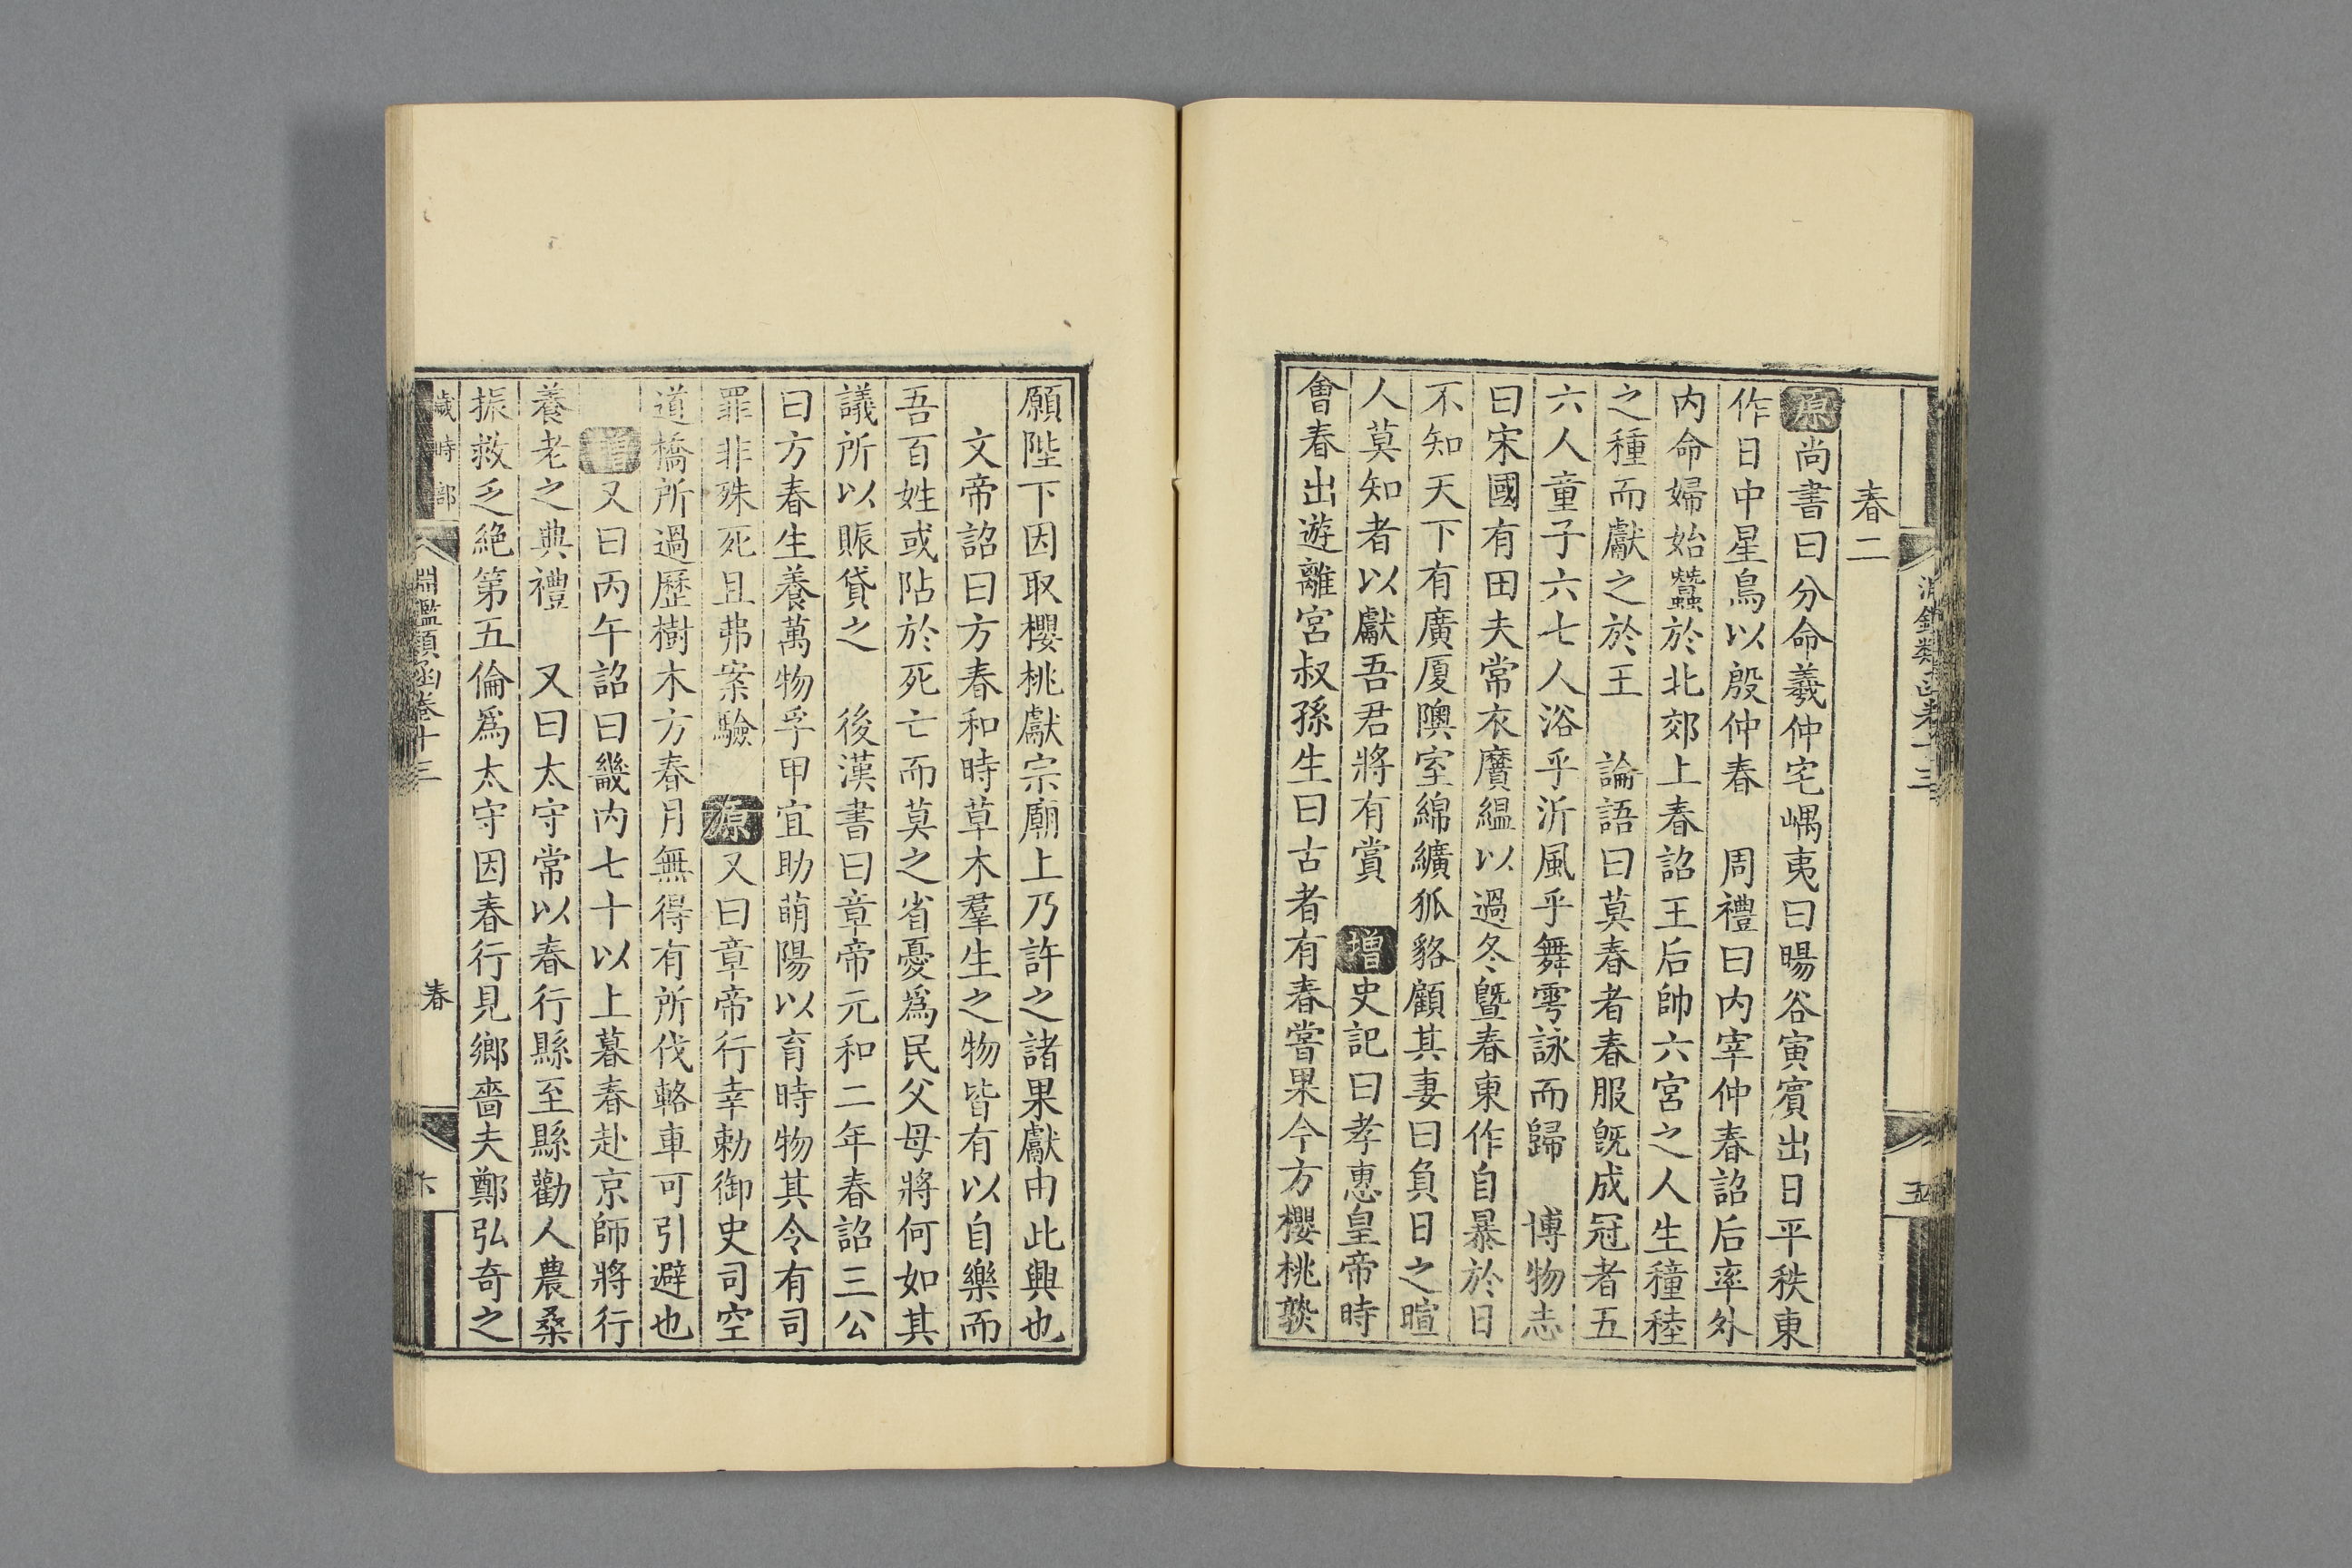 淵鑑類函卷十三
五
春二
原尚書曰分命羲仲宅嵎夷曰暘谷寅賓出日平秩東
作日中星鳥以殷仲春　周禮曰内宰仲春詔后率外
内命婦始蠶於北郊上春詔王后帥六宮之人生穜稑
之種而獻之於王　論語曰莫春者春服旣成冠者五
六人童子六七人浴乎沂風乎舞雩詠而歸　博物志
曰宋國有田夫常衣黂緼以過冬曁春東作自暴於日
不知天下有廣厦隩室綿纊狐貉顧其妻曰負日之暄
人莫知者以獻吾君將有賞　增史記曰孝惠皇帝時
會春出遊離宮叔孫生曰古者有春嘗果今方櫻桃孰
願陛下因取櫻桃獻宗廟上乃許之諸果獻由此興也
文帝詔曰方春和時草木羣生之物皆有以自樂而
吾百姓或阽於死亡而莫之省憂爲民父母將何如其
議所以賑貸之　後漢書曰章帝元和二年春詔三公
曰方春生養萬物孚甲宜助萌陽以育時物其令有司
罪非殊死且弗案驗　原又曰章帝行幸勅御史司空
道橋所過歷樹木方春月無得有所伐輅車可引避也
增又曰丙午詔曰畿内七十以上暮春赴京師將行
養老之典禮　又曰太守常以春行縣至縣勸人農桑
振救乏絶第五倫爲太守因春行見鄉嗇夫鄭弘奇之
歲時部
淵鑑類函卷十三
春
六